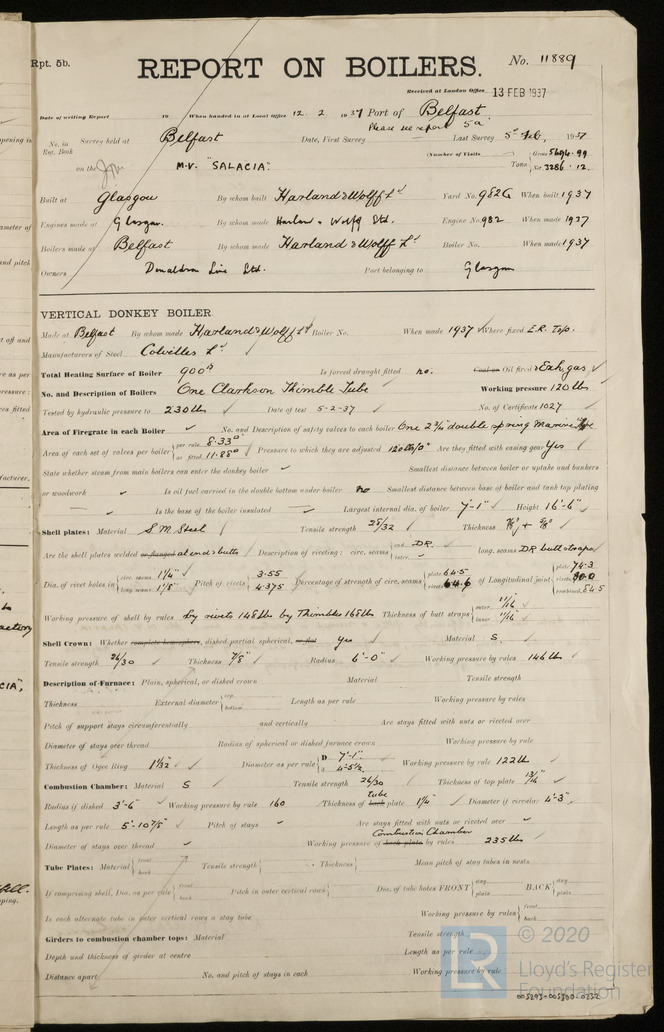 Rpt. 5b.
REPORT ON BOILERS.
No. 11889
Received at London Office 13 FEB 1937
Date of writing Report 19 When handed in at Local Office 12. 2. 1937 Port of Belfast.
Please see report 5a
No. in Reg. Book Survey held at Belfast Date, First Survey — Last Survey 5th Feb, 1937
(Number of Visits Gross 5694.99
on the M.V. "SALACIA". Tons Net 3286.12.
Built at Glasgow By whom built Harland & Wolff Ld Yard No. 982G When built 1937
Engines made at Glasgow. By whom made Harland & Wolff Ltd. Engine No. 982 When made 1937
Boilers made at Belfast By whom made Harland & Wolff Ld Boiler No. When made 1937
Owners Donaldson Line Ltd. Port belonging to Glasgow
VERTICAL DONKEY BOILER.
Made at Belfast By whom made Harland & Wolff Ld Boiler No. When made 1937 Where fixed E.R. Top.
Manufacturers of Steel Colvilles Ld.
Total Heating Surface of Boiler 900□ Is forced draught fitted no. Coal or Oil fired & Exh. gas
No. and Description of Boilers One Clarkson Thimble Tube Working pressure 120 lbs
Tested by hydraulic pressure to 230 lbs Date of test 5-2-37 No. of Certificate 1027
Area of Firegrate in each Boiler No. and Description of safety valves to each boiler One 2¾" double spring Marine Type
Area of each set of valves per boiler per rule 8.33□" as fitted 11.88□" Pressure to which they are adjusted 120 lbs/□" Are they fitted with easing gear Yes
State whether steam from main boilers can enter the donkey boiler Smallest distance between boiler or uptake and bunkers
or woodwork Is oil fuel carried in the double bottom under boiler no Smallest distance between base of boiler and tank top plating
— Is the base of the boiler insulated — Largest internal dia. of boiler 7'-1" Height 16'-6"
Shell plates: Material S.M. Steel Tensile strength 28/32 Thickness 7/8" + 5/8"
Are the shell plates welded or flanged at ends & butts Description of riveting: circ. seams end DR. inter. long. seams DR butt straps
Dia. of rivet holes in circ. seams 1¼" long. seams 1⅛" Pitch of rivets 3.55 4.375 Percentage of strength of circ. seams plate 64.5 rivets 64.6 of Longitudinal joint plate 74.3 rivets 90.0 combined 84.5
Working pressure of shell by rules by rivets 148 lbs by Thimbles 168 lbs Thickness of butt straps outer 11/16 inner 11/16
Shell Crown: Whether complete hemisphere, dished partial spherical, or flat Yes Material S.
Tensile strength 26/30 Thickness 7/8" Radius 6'-0" Working pressure by rules 146 lbs
Description of Furnace: Plain, spherical, or dished crown Material Tensile strength
Thickness External diameter top bottom Length as per rule Working pressure by rules
Pitch of support stays circumferentially and vertically Are stays fitted with nuts or riveted over
Diameter of stays over thread Radius of spherical or dished furnace crown Working pressure by rule
Thickness of Ogee Ring 1 1/32 Diameter as per rule D 7'-1". d 4'-5½ Working pressure by rule 122 lb
Combustion Chamber: Material S Tensile strength 26/30 Thickness of top plate 13/16
Radius if dished 3'-6" Working pressure by rule 160 Thickness of back tube plate 1¼" Diameter if circular 4'-3"
Length as per rule 5'-10⅞" Pitch of stays Are stays fitted with nuts or riveted over
Diameter of stays over thread Working pressure of back plate Combustion Chamber by rules 235 lbs
Tube Plates: Material front back Tensile strength Thickness Mean pitch of stay tubes in nests
If comprising shell, Dia. as per rule front back Pitch in outer vertical rows Dia. of tube holes FRONT stay plain BACK stay plain
Is each alternate tube in outer vertical rows a stay tube Working pressure by rules front back
Girders to combustion chamber tops: Material Tensile strength
Depth and thickness of girder at centre Length as per rule
Distance apart No. and pitch of stays in each Working pressure by rule
LR © 2020
Lloyd's Register
Foundation
005293-005300-0232